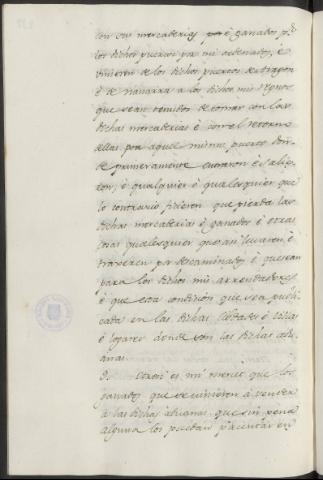 con sus mercaderias è ganados p.r
los dichos puertos por mi ordenados, è
vinieren de los dichos puertos de Aragon
è de navarra a los dichos mis Regnos
que sean tenidos de tornar con las
dichas mercaderias è con el retorno
dellas por aquel mismo puerto don-
de primeramente entraron è salie-
ron, è qualquier è qualesquier que
lo contrario ficieren que pierda las
dichas mercaderias è ganados è otras
cosas qualesquier que asi llevaren è
traxeren por descaminado è que sean
para los dichos mis arrendadores,
è que esta condicion que sea publi-
cada en las dichas Cibdades è villas
è logares donde son las dichas adu-
anas.
9. Otrosi es mi merced que los
ganados que se vinieren à vender
à las dichas aduanas que sin pena
alguna los puedan presentar en